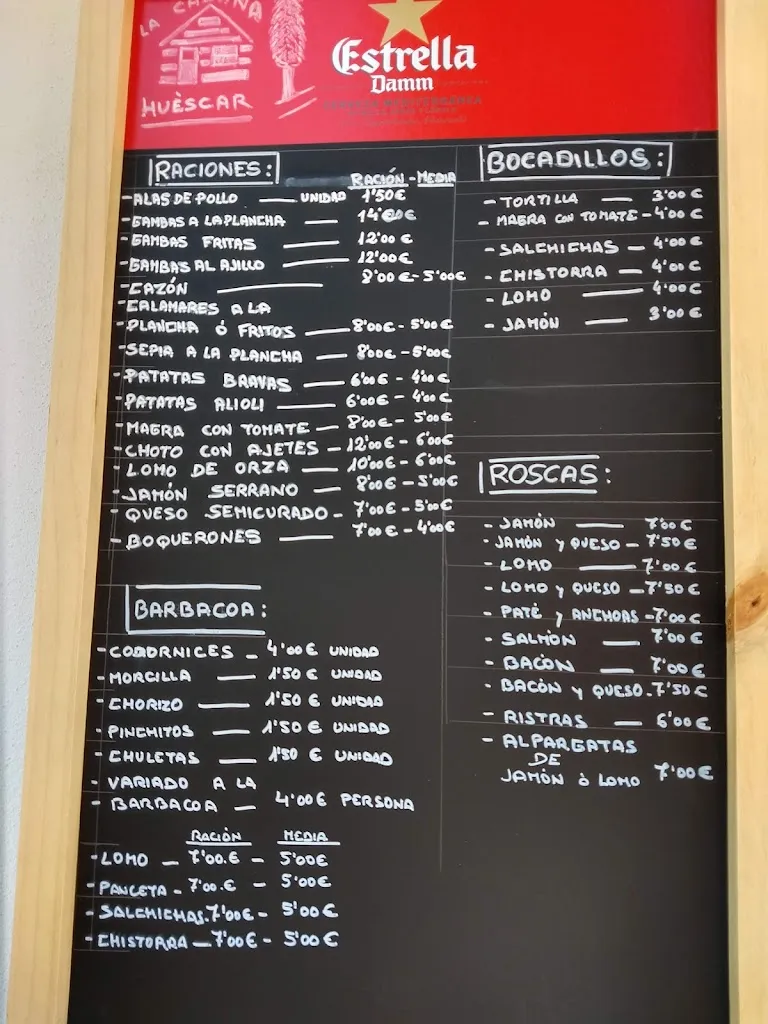 LA CABAÑA
HUÈSCAR
Estrella
Damm
RACIONES:
RACIÓN - MEDIA
- ALAS DE POLLO — UNIDAD 1'50€
- GAMBAS A LA PLANCHA — 14'00€
- GAMBAS FRITAS — 12'00€
- GAMBAS AL AJILLO — 12'00€
- CAZÓN — 8'00€ - 5'00€
- CALAMARES A LA
PLANCHA Ó FRITOS — 8'00€ - 5'00€
- SEPIA A LA PLANCHA — 8'00€ - 5'00€
- PATATAS BRAVAS — 6'00€ - 4'00€
- PATATAS ALIOLI — 6'00€ - 4'00€
- MAGRA CON TOMATE — 8'00€ - 5'00€
- CHOTO CON AJETES - 12'00€ - 6'00€
- LOMO DE ORZA — 10'00€ - 6'00€
- JAMÓN SERRANO — 8'00€ - 5'00€
- QUESO SEMICURADO - 7'00€ - 5'00€
- BOQUERONES — 7'00€ - 4'00€
BARBACOA:
- CODORNICES - 4'00€ UNIDAD
- MORCILLA — 1'50€ UNIDAD
- CHORIZO — 1'50€ UNIDAD
- PINCHITOS — 1'50€ UNIDAD
- CHULETAS — 1'50€ UNIDAD
- VARIADO A LA
- BARBACOA — 4'00€ PERSONA
RACIÓN MEDIA
- LOMO — 7'00.€ - 5'00€
- PANCETA - 7'00.€ - 5'00€
- SALCHICHAS. 7'00€ - 5'00€
- CHISTORRA — 7'00€ - 5'00€
BOCADILLOS:
- TORTILLA — 3'00€
- MAGRA CON TOMATE - 4'00€
- SALCHICHAS — 4'00€
- CHISTORRA — 4'00€
- LOMO — 4'00€
- JAMÓN — 3'00€
ROSCAS:
- JAMÓN — 7'00€
- JAMÓN Y QUESO - 7'50€
- LOMO — 7'00€
- LOMO Y QUESO - 7'50€
- PATÉ Y ANCHOAS - 7'00€
- SALMÓN — 7'00€
- BACÓN — 7'00€
- BACÓN Y QUESO. 7'50€
- RISTRAS — 6'00€
- ALPARGATAS
DE
JAMÓN Ó LOMO 7'00€